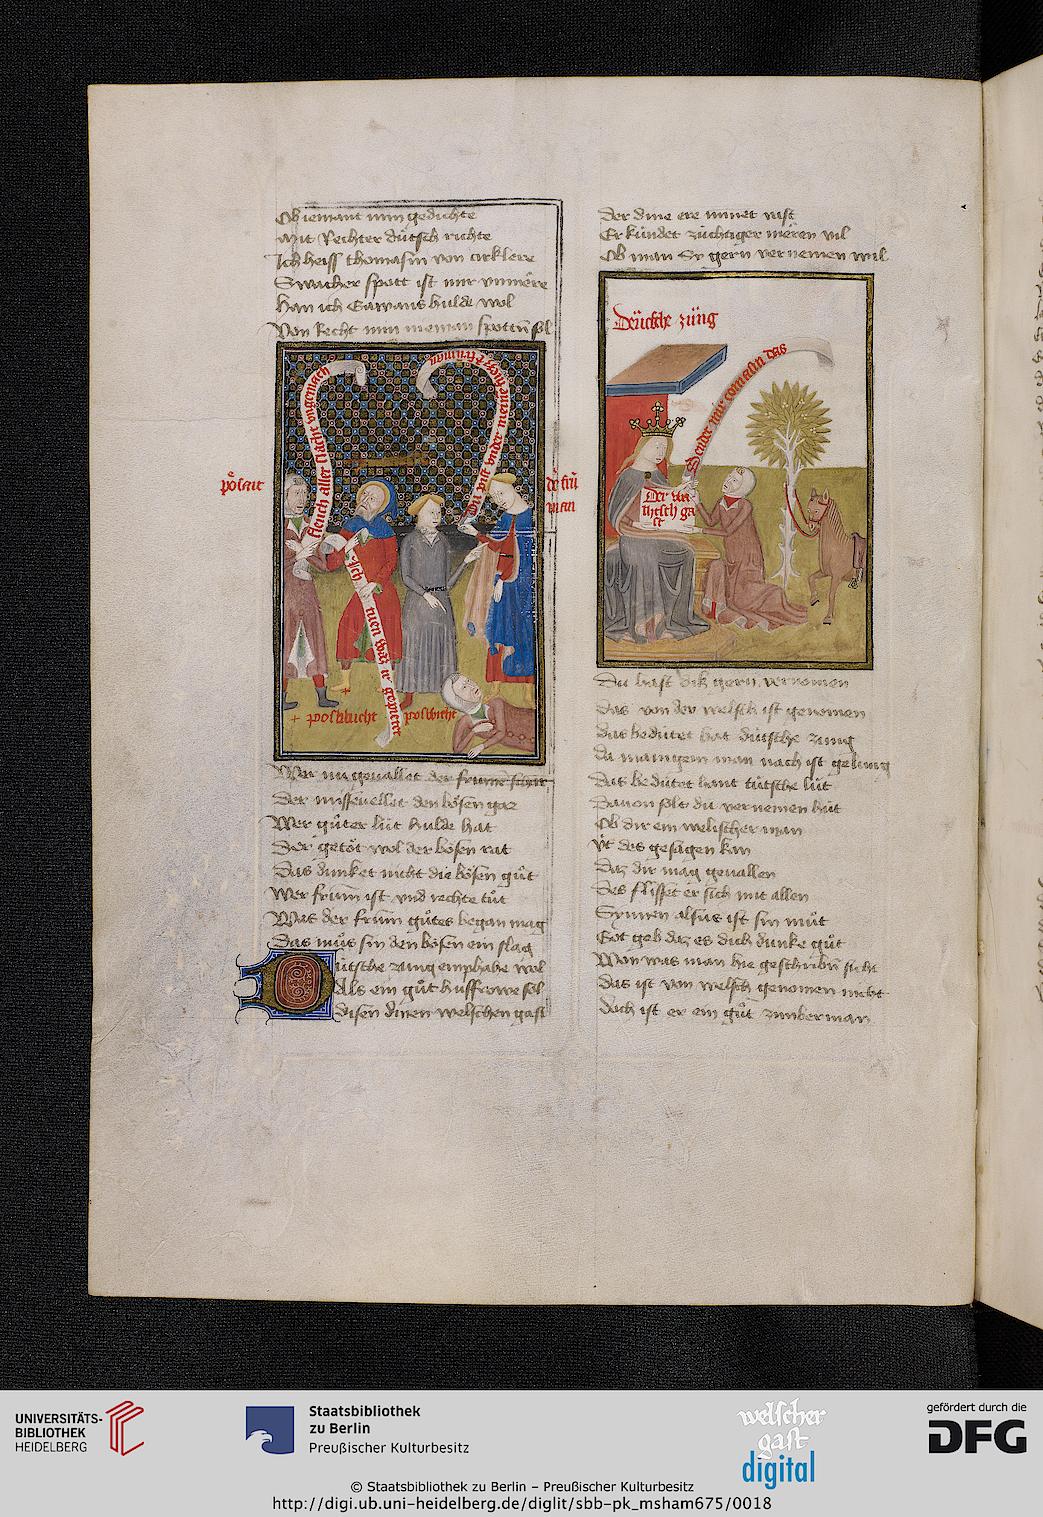 Ob iemant min gedichte
Mit Rechter dütsch richte
Ich heiss thomasin von cirklere
Swacher spott ist mir vnmere
Han ich Gawans hulde wol
Von Recht min nieman spotten sol
pôswit
fleuch aller slacht vngemach
Du pist vnder meinen
de frü
man
Ich tuen waz ir gepietet
+ poswicht
poswicht
Wer nu geuallet der frume schar
Der missevellet den bôsen gar
Wer gůter lüt hulde hat
Der getôt wol der bôsen rat
Das dunket nicht die bôsen gůt
Wer frum ist vnd rechte tůt
Was der frum gůtes began mag
Das můs sin den bôsen ein slag
Dütsche zung emphahe wol
Als ein gůt husfrowe sol
disen dinen welschen gast
Der dine ere minet vast
Er kündet züchtiger meren vil
Ob man Sy gern vernemen wil
Deücsche züng
Sendet mir tomasin das
Der wa-
lhisch ga
st
Du hast dik gern vernomen
Das von der welsch ist genomen
das bedütet hat dütsche zung
Da manigem man nach ist gelung
das bedütet hant tütsche lüt
Dauon solt du vernemen hüt
Ob dir ein welischer man
üt des gesagen kan
Daz dir mag geuallen
Des flisset er sich mit allen
Synnen alsus ist sin můt
Got geb daz es dich dunke gůt
Won was man hie geschriben sicht
Das ist von welsch genomen nicht
doch ist er ein gůt zimberman
UNIVERSITÄTS-
BIBLIOTHEK
HEIDELBERG
Staatsbibliothek
zu Berlin
Preußischer Kulturbesitz
welscher
gast
digital
gefördert durch die
DFG
© Staatsbibliothek zu Berlin – Preußischer Kulturbesitz
http://digi.ub.uni-heidelberg.de/diglit/sbb-pk_msham675/0018